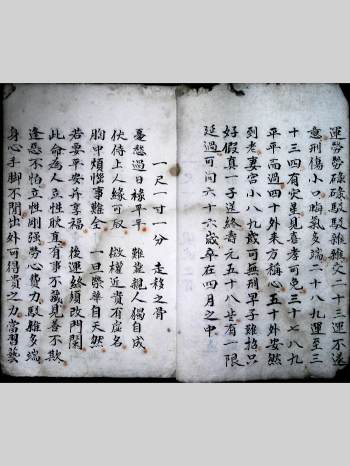 運勞勞碌碌駁駁雜雜交二十三運不遂
愈刑傷小口晦氣多端二十八九運至三
十三四有灾星見喜孝可免三十七八九
平平而過四十外來方稱心五十外安然
到老妻宮小八九歲可無刑早子難招只
好假真一子送終壽元五十八岁有一限
延過可问六十六歲卒在四月之中
一尺一寸一分 走移之骨
憂愁過日祿平平 難靠親人獨自成
伏侍上人緣可取 微權近貴有虛名
胸中煩惱事難全 一旦榮華自天然
若要平安并享福 後運終須改門閭
此命為人立性耿直有事不藏見善不欺
逢惡不怕立性剛強勞心費力駁雜多端
身心手脚不閒出外可得貴之力當習藝